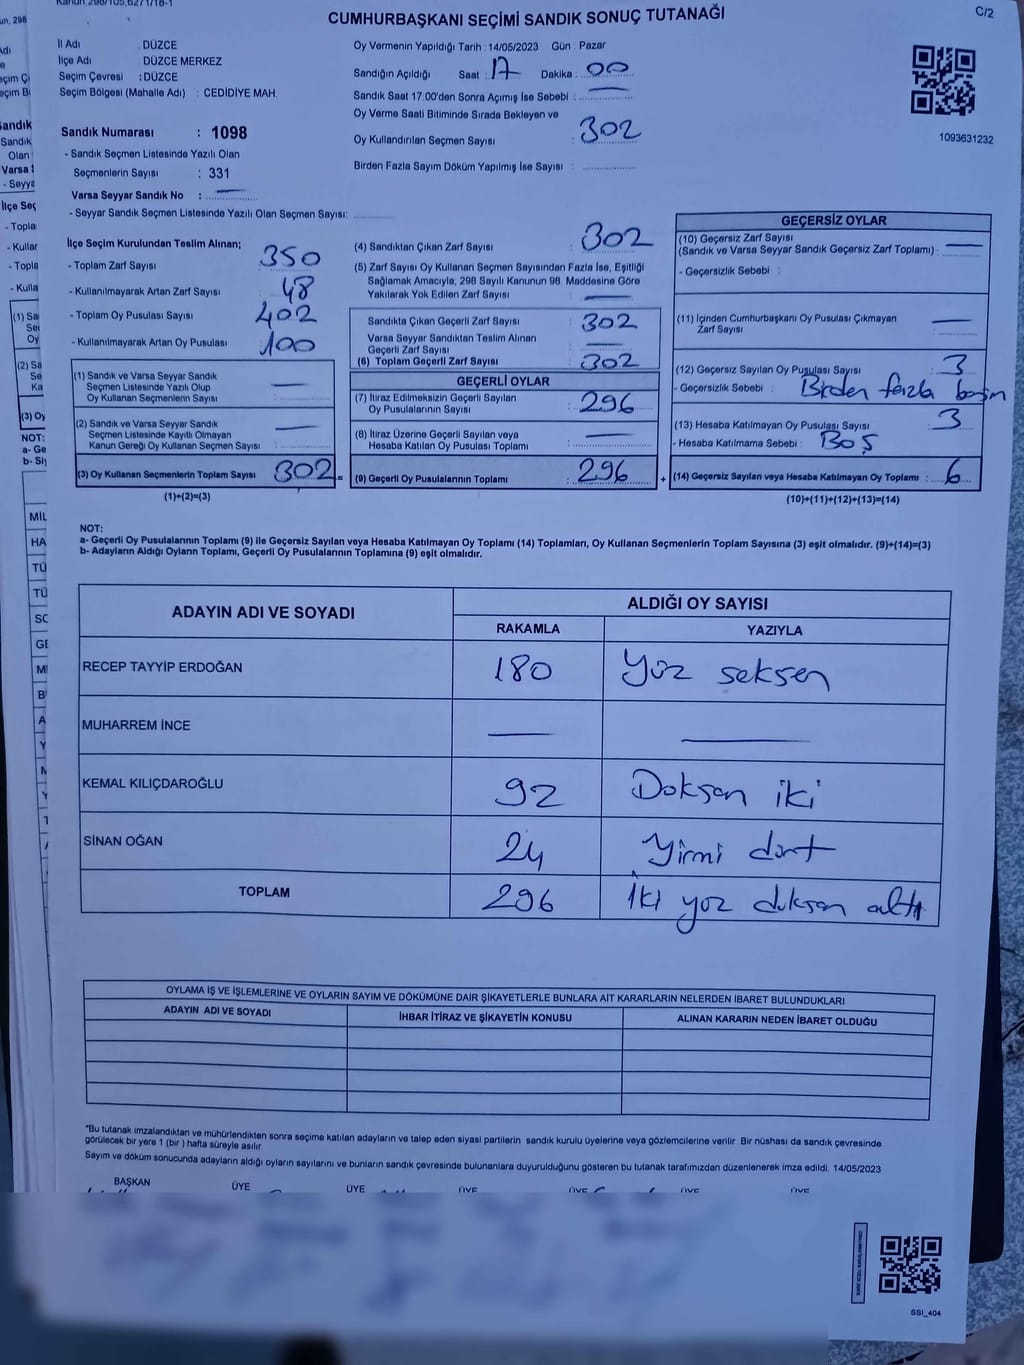 Kanun, 298/105,6271/18-1
C/2
CUMHURBAŞKANI SEÇİMİ SANDIK SONUÇ TUTANAĞI
İl Adı : DÜZCE
İlçe Adı DÜZCE MERKEZ
Seçim Çevresi : DÜZCE
Seçim Bölgesi (Mahalle Adı) : CEDİDİYE MAH.
Sandık Numarası : 1098
- Sandık Seçmen Listesinde Yazılı Olan
Seçmenlerin Sayısı : 331
Varsa Seyyar Sandık No : —
- Seyyar Sandık Seçmen Listesinde Yazılı Olan Seçmen Sayısı:
Oy Vermenin Yapıldığı Tarih : 14/05/2023 Gün : Pazar
Sandığın Açıldığı Saat : 17 Dakika : 00
Sandık Saat 17:00'den Sonra Açımış İse Sebebi : —
Oy Verme Saati Bitiminde Sırada Bekleyen ve
Oy Kullandırılan Seçmen Sayısı : 302
Birden Fazla Sayım Döküm Yapılmış İse Sayısı :
1093631232
İlçe Seçim Kurulundan Teslim Alınan;
- Toplam Zarf Sayısı 350
- Kullanılmayarak Artan Zarf Sayısı 48
- Toplam Oy Pusulası Sayısı 402
- Kullanılmayarak Artan Oy Pusulası 100
(1) Sandık ve Varsa Seyyar Sandık
Seçmen Listesinde Yazılı Olup
Oy Kullanan Seçmenlerin Sayısı : —
(2) Sandık ve Varsa Seyyar Sandık
Seçmen Listesinde Kayıtlı Olmayan
Kanun Gereği Oy Kullanan Seçmen Sayısı : —
(3) Oy Kullanan Seçmenlerin Toplam Sayısı 302
(1)+(2)=(3)
(4) Sandıktan Çıkan Zarf Sayısı : 302
(5) Zarf Sayısı Oy Kullanan Seçmen Sayısından Fazla İse, Eşitliği
Sağlamak Amacıyla, 298 Sayılı Kanunun 98. Maddesine Göre
Yakılarak Yok Edilen Zarf Sayısı : —
Sandıkta Çıkan Geçerli Zarf Sayısı : 302
Varsa Seyyar Sandıktan Teslim Alınan
Geçerli Zarf Sayısı : —
(6) Toplam Geçerli Zarf Sayısı : 302
GEÇERLİ OYLAR
(7) İtiraz Edilmeksizin Geçerli Sayılan
Oy Pusulalarının Sayısı : 296
(8) İtiraz Üzerine Geçerli Sayılan veya
Hesaba Katılan Oy Pusulası Toplamı : —
= (9) Geçerli Oy Pusulalarının Toplamı : 296
GEÇERSİZ OYLAR
(10) Geçersiz Zarf Sayısı
(Sandık ve Varsa Seyyar Sandık Geçersiz Zarf Toplamı) : —
- Geçersizlik Sebebi :
(11) İçinden Cumhurbaşkanı Oy Pusulası Çıkmayan
Zarf Sayısı : —
(12) Geçersiz Sayılan Oy Pusulası Sayısı : 3
- Geçersizlik Sebebi : Birden fazla basım
(13) Hesaba Katılmayan Oy Pusulası Sayısı : 3
- Hesaba Katılmama Sebebi : BOŞ
+ (14) Geçersiz Sayılan veya Hesaba Katılmayan Oy Toplamı : 6
(10)+(11)+(12)+(13)=(14)
NOT:
a- Geçerli Oy Pusulalarının Toplamı (9) ile Geçersiz Sayılan veya Hesaba Katılmayan Oy Toplamı (14) Toplamları, Oy Kullanan Seçmenlerin Toplam Sayısına (3) eşit olmalıdır. (9)+(14)=(3)
b- Adayların Aldığı Oyların Toplamı, Geçerli Oy Pusulalarının Toplamına (9) eşit olmalıdır.
ADAYIN ADI VE SOYADI ALDIĞI OY SAYISI
RAKAMLA YAZIYLA
RECEP TAYYİP ERDOĞAN 180 Yüz seksen
MUHARREM İNCE — —
KEMAL KILIÇDAROĞLU 92 Doksan iki
SİNAN OĞAN 24 Yirmi dört
TOPLAM 296 İki yüz doksan altı
OYLAMA İŞ VE İŞLEMLERİNE VE OYLARIN SAYIM VE DÖKÜMÜNE DAİR ŞİKAYETLERLE BUNLARA AİT KARARLARIN NELERDEN İBARET BULUNDUKLARI
ADAYIN ADI VE SOYADI İHBAR İTİRAZ VE ŞİKAYETİN KONUSU ALINAN KARARIN NEDEN İBARET OLDUĞU
*Bu tutanak imzalandıktan ve mühürlendikten sonra seçime katılan adayların ve talep eden siyasi partilerin sandık kurulu üyelerine veya gözlemcilerine verilir. Bir nüshası da sandık çevresinde
görülecek bir yere 1 (bir) hafta süreyle asılır.
Sayım ve döküm sonucunda adayların aldığı oyların sayılarını ve bunların sandık çevresinde bulunanlara duyurulduğunu gösteren bu tutanak tarafımızdan düzenlenerek imza edildi. 14/05/2023
BAŞKAN ÜYE ÜYE ÜYE ÜYE ÜYE ÜYE
SSİ_404